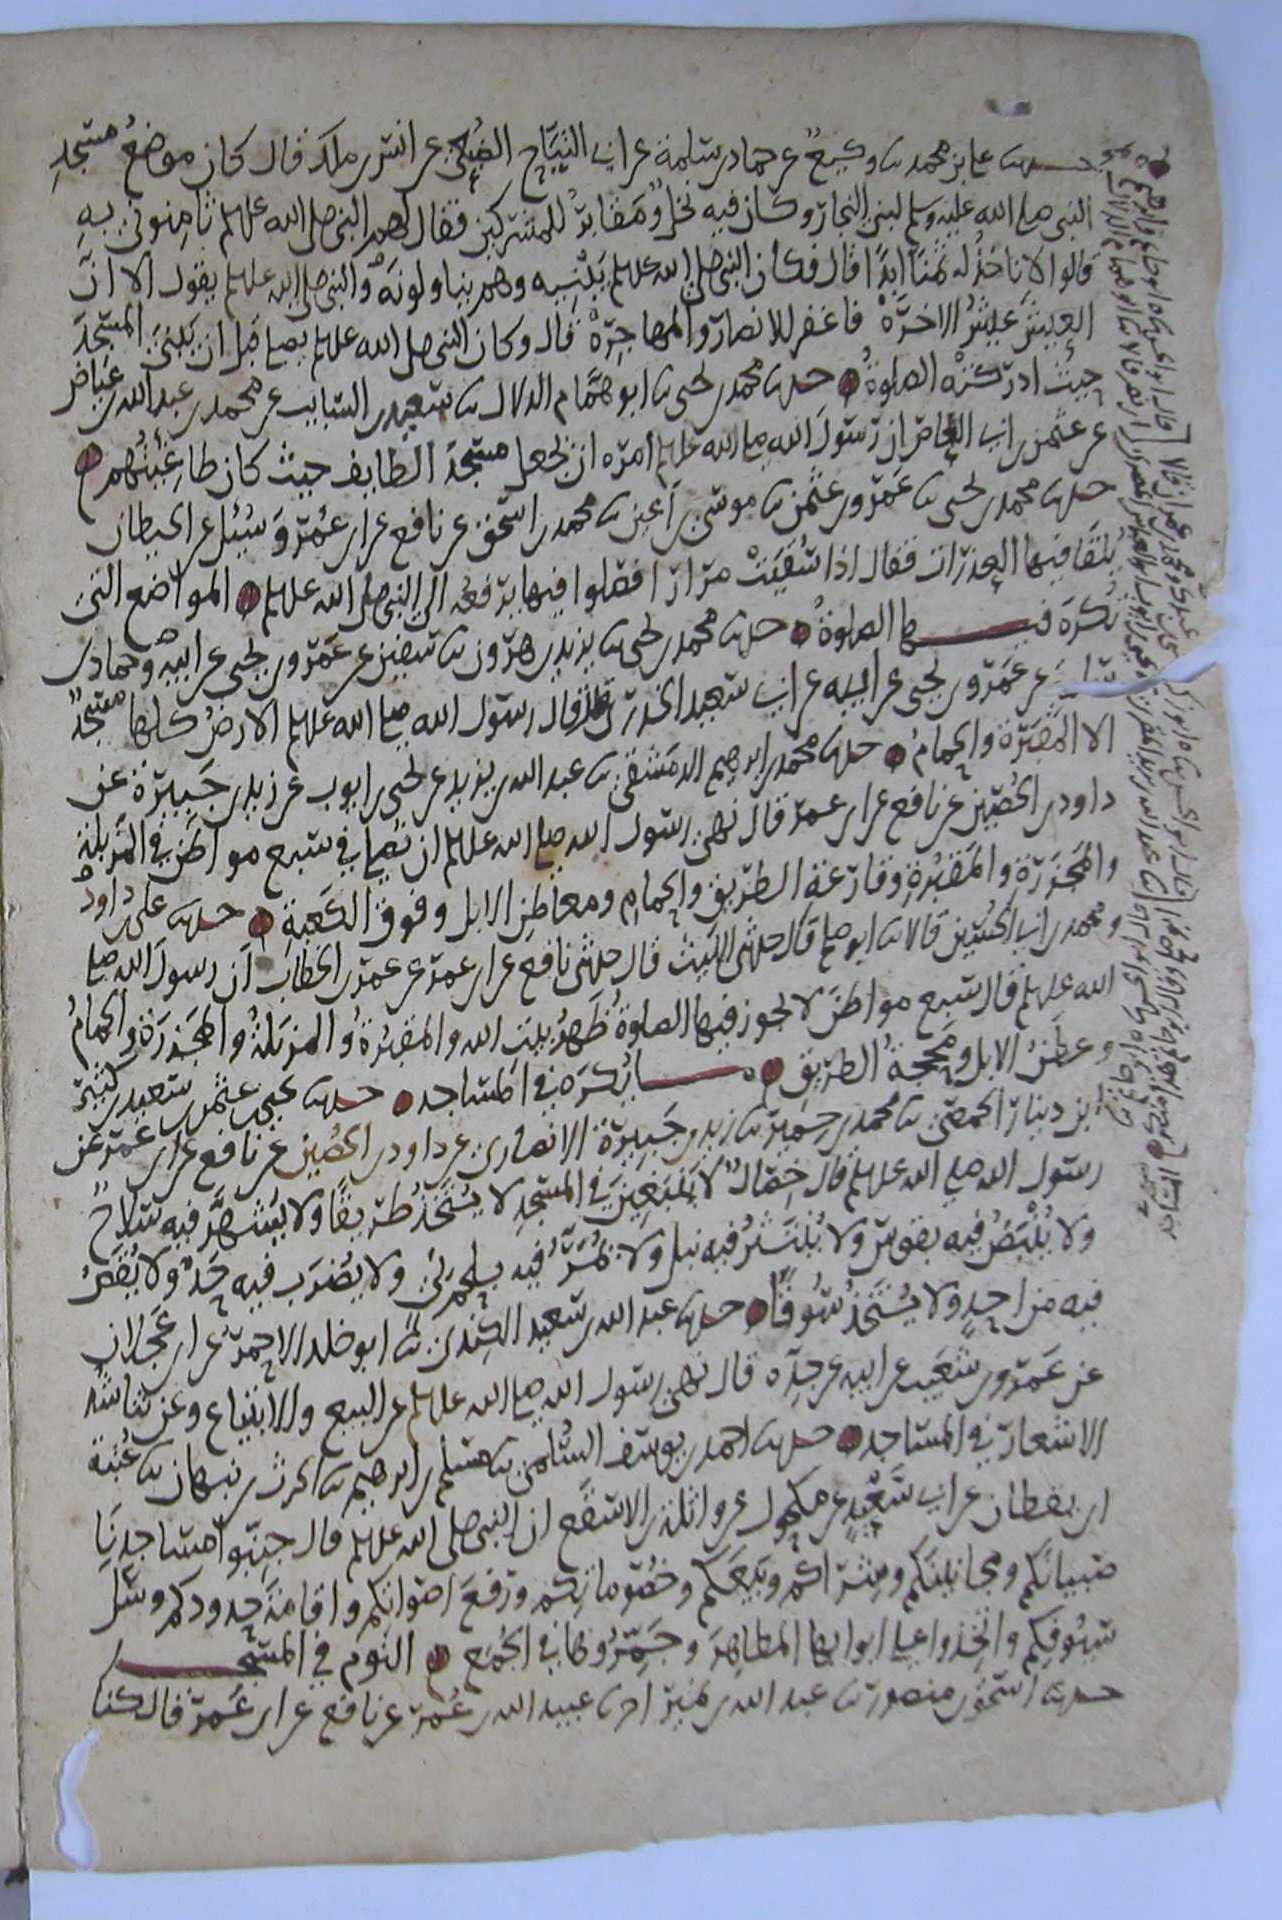 حدثنا علي بن محمد ثنا وكيع عن حماد بن سلمة عن ابي التياح الضبعي عن انس بن ملك قال كان موضع مسجد
النبي صلى الله عليه وسلم لبني النجار وكان فيه نخل ومقابر للمشركين فقال لهم النبي صلى الله عليه وسلم ثامنوني به
قالوا لا ناخذ له ثمنا ابدا قال فكان النبي صلى الله عليه وسلم يبنيه وهم يناولونه والنبي صلى الله عليه وسلم يقول الا ان
العيش عيش الاخرة فاغفر للانصار والمهاجرة قال وكان النبي صلى الله عليه وسلم يصلي قبل ان يبني المسجد
حيث ادركته الصلوة حدثنا محمد بن يحيى ثنا ابو همام الدلال ثنا سعيد بن السايب عن محمد بن عبد الله بن عياض
عن عثمن بن ابي العاص ان رسول الله صلى الله عليه وسلم امره ان يجعل مسجد الطايف حيث كان طاغيتهم
حدثنا محمد بن يحيى ثنا عمرو بن عثمن ثنا موسى بن اعين ثنا محمد بن اسحق عن نافع عن ابن عمر وسئل عن الحيطان
يلقا فيها العذرات فقال اذا سقيت مرارا فصلوا فيها يرفعه الى النبي صلى الله عليه وسلم المواضع التي
تكره فيها الصلوة حدثنا محمد بن يحيى ثنا يزيد بن هرون ثنا سفين عن عمرو بن يحيى عن ابيه وحماد بن
سلمة عن عمرو بن يحيى عن ابيه عن ابي سعيد الخدري قال قال رسول الله صلى الله عليه وسلم الارض كلها مسجد
الا المقبرة والحمام حدثنا محمد بن ابرهيم الدمشقي ثنا عبد الله بن يزيد عن يحيى بن ايوب عن زيد بن جبيرة عن
داود بن الحصين عن نافع عن ابن عمر قال نهى رسول الله صلى الله عليه وسلم ان يصلى في سبع مواطن في المزبلة
والمجزرة والمقبرة وقارعة الطريق والحمام ومعاطن الابل وفوق الكعبة حدثنا علي بن داود
ومحمد بن ابي الحسين قالا ثنا ابو صالح قال حدثني الليث قال حدثني نافع عن ابن عمر عن عمر بن الخطاب ان رسول الله صلى
الله عليه وسلم قال سبع مواطن لا يجوز فيها الصلوة ظهر بيت الله والمقبرة والمزبلة والمجزرة والحمام
وعطن الابل ومحجة الطريق ما يكره في المساجد حدثنا يحيى بن عثمن بن سعيد بن كثير
ابن دينار الحمصي ثنا محمد بن حمير ثنا زيد بن جبيرة الانصاري عن داود بن الحصين عن نافع عن ابن عمر عن
رسول الله صلى الله عليه وسلم قال خصال لا ينبغين في المسجد لا يتخذ طريقا ولا يشهر فيه سلاح
ولا ينبض فيه بقوس ولا ينتثر فيه نبل ولا يمر فيه بلحم نئ ولا يضرب فيه حد ولا يقص
فيه من احد ولا يتخذ سوقا حدثنا عبد الله بن سعيد الكندي ثنا ابو خلد الاحمر عن ابن عجلان
عن عمرو بن شعيب عن ابيه عن جده قال نهى رسول الله صلى الله عليه وسلم عن البيع والابتياع وعن تناشد
الاشعار في المساجد حدثنا احمد بن يوسف السلمي ثنا مسلم بن ابرهيم ثنا الحرث بن نبهان ثنا عتبة
ابن يقظان عن ابي سعيد عن مكحول عن واثلة بن الاسقع ان النبي صلى الله عليه وسلم قال جنبوا مساجدنا
صبيانكم ومجانينكم وشراكم وبيعكم وخصوماتكم ورفع اصواتكم واقامة حدودكم وسل
سيوفكم واتخذوا على ابوابها المطاهر وجمروها في الجمع النوم في المسجد
حدثنا اسحق بن منصور ثنا عبد الله بن نمير اخبرنا عبيد الله بن عمر عن نافع عن ابن عمر قال كنا